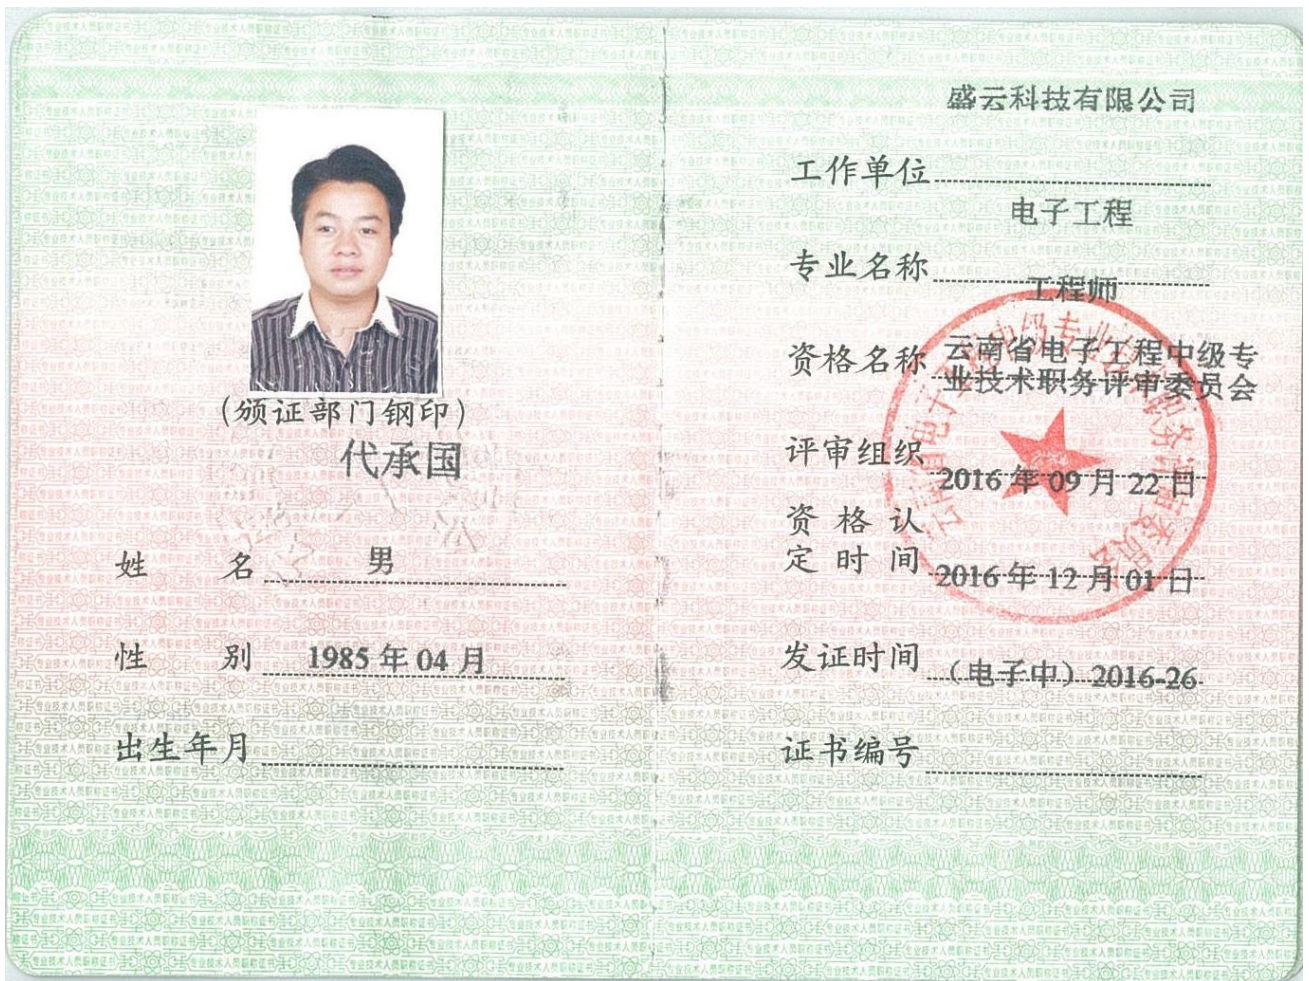 (颁证部门钢印)
代承国
姓 名 男
性 别 1985 年 04 月
出生年月
盛云科技有限公司
工作单位
电子工程
专业名称
工程师
资格名称 云南省电子工程中级专
业技术职务评审委员会
评审组织 2016 年 09 月 22 日
资 格 认
定 时 间 2016 年 12 月 01 日
发证时间 (电子中) 2016-26
证书编号
云南省电子工程中级专业技术职务评审委员会